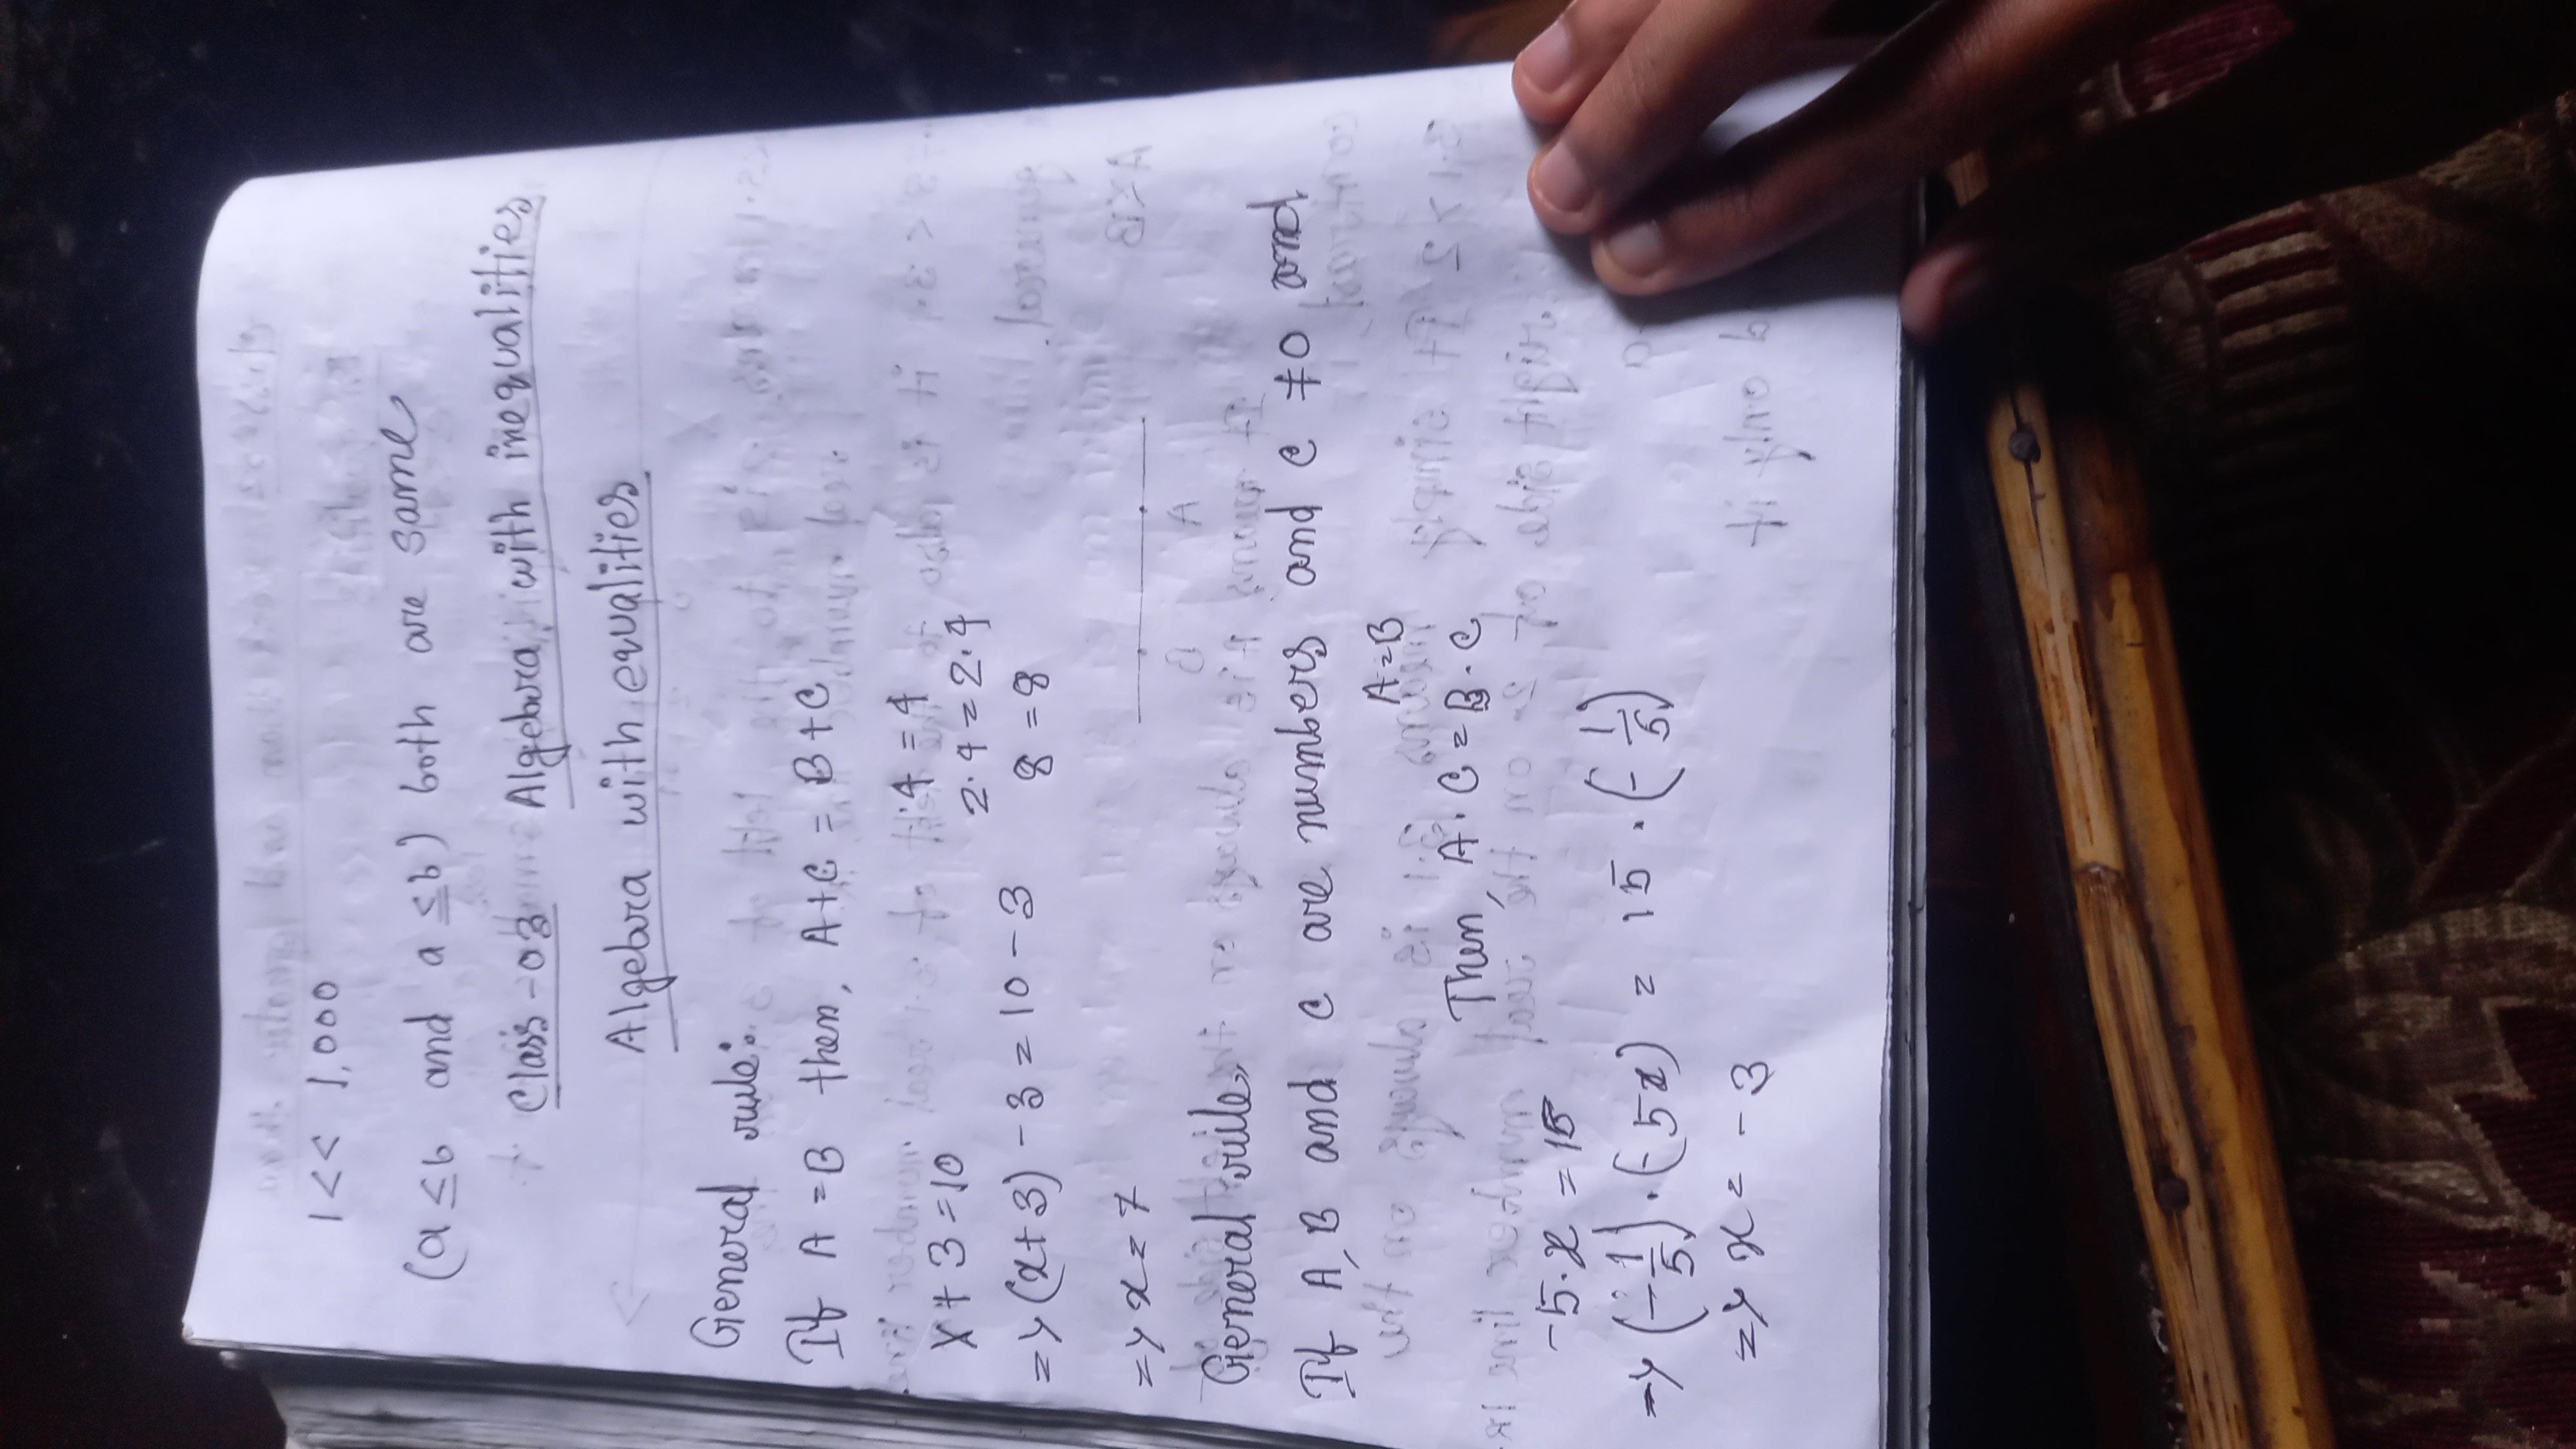 1 << 1,000
(a ≤ b and a ≦ b) both are same
Class-03 Algebra with inequalities
Algebra with equalities
General rule:
If A = B then, A+C = B+C
4 = 4
x + 3 = 10
2·4 = 2·4
=> (x+3) - 3 = 10 - 3
8 = 8
=> x = 7
General rule,
If A, B and C are numbers and C ≠ 0 and
A = B
Then, A · C = B · C
-5·x = 15
=> (-1/5) · (-5x) = 15 · (-1/5)
=> x = -3